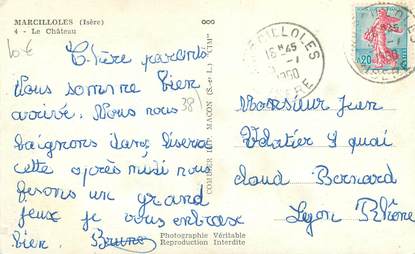 MARCILLOLES (Isère)
4 - Le Château
Chère parents
Nous somme bien
arrivé. Nous nous
baignons dans liserée
cette après midi nous
fesons un grand
feux je vous embrasse
bien. Bruno
38
COMBIER IMP. MACON (S.-et-L.) "CIM"
Photographie Véritable
Reproduction Interdite
MARCILLOLES
18H45
1960
ISÈRE
0,20
Monsieur Jean
Velatier 5 quai
claud Bernard
Lyon Rhône